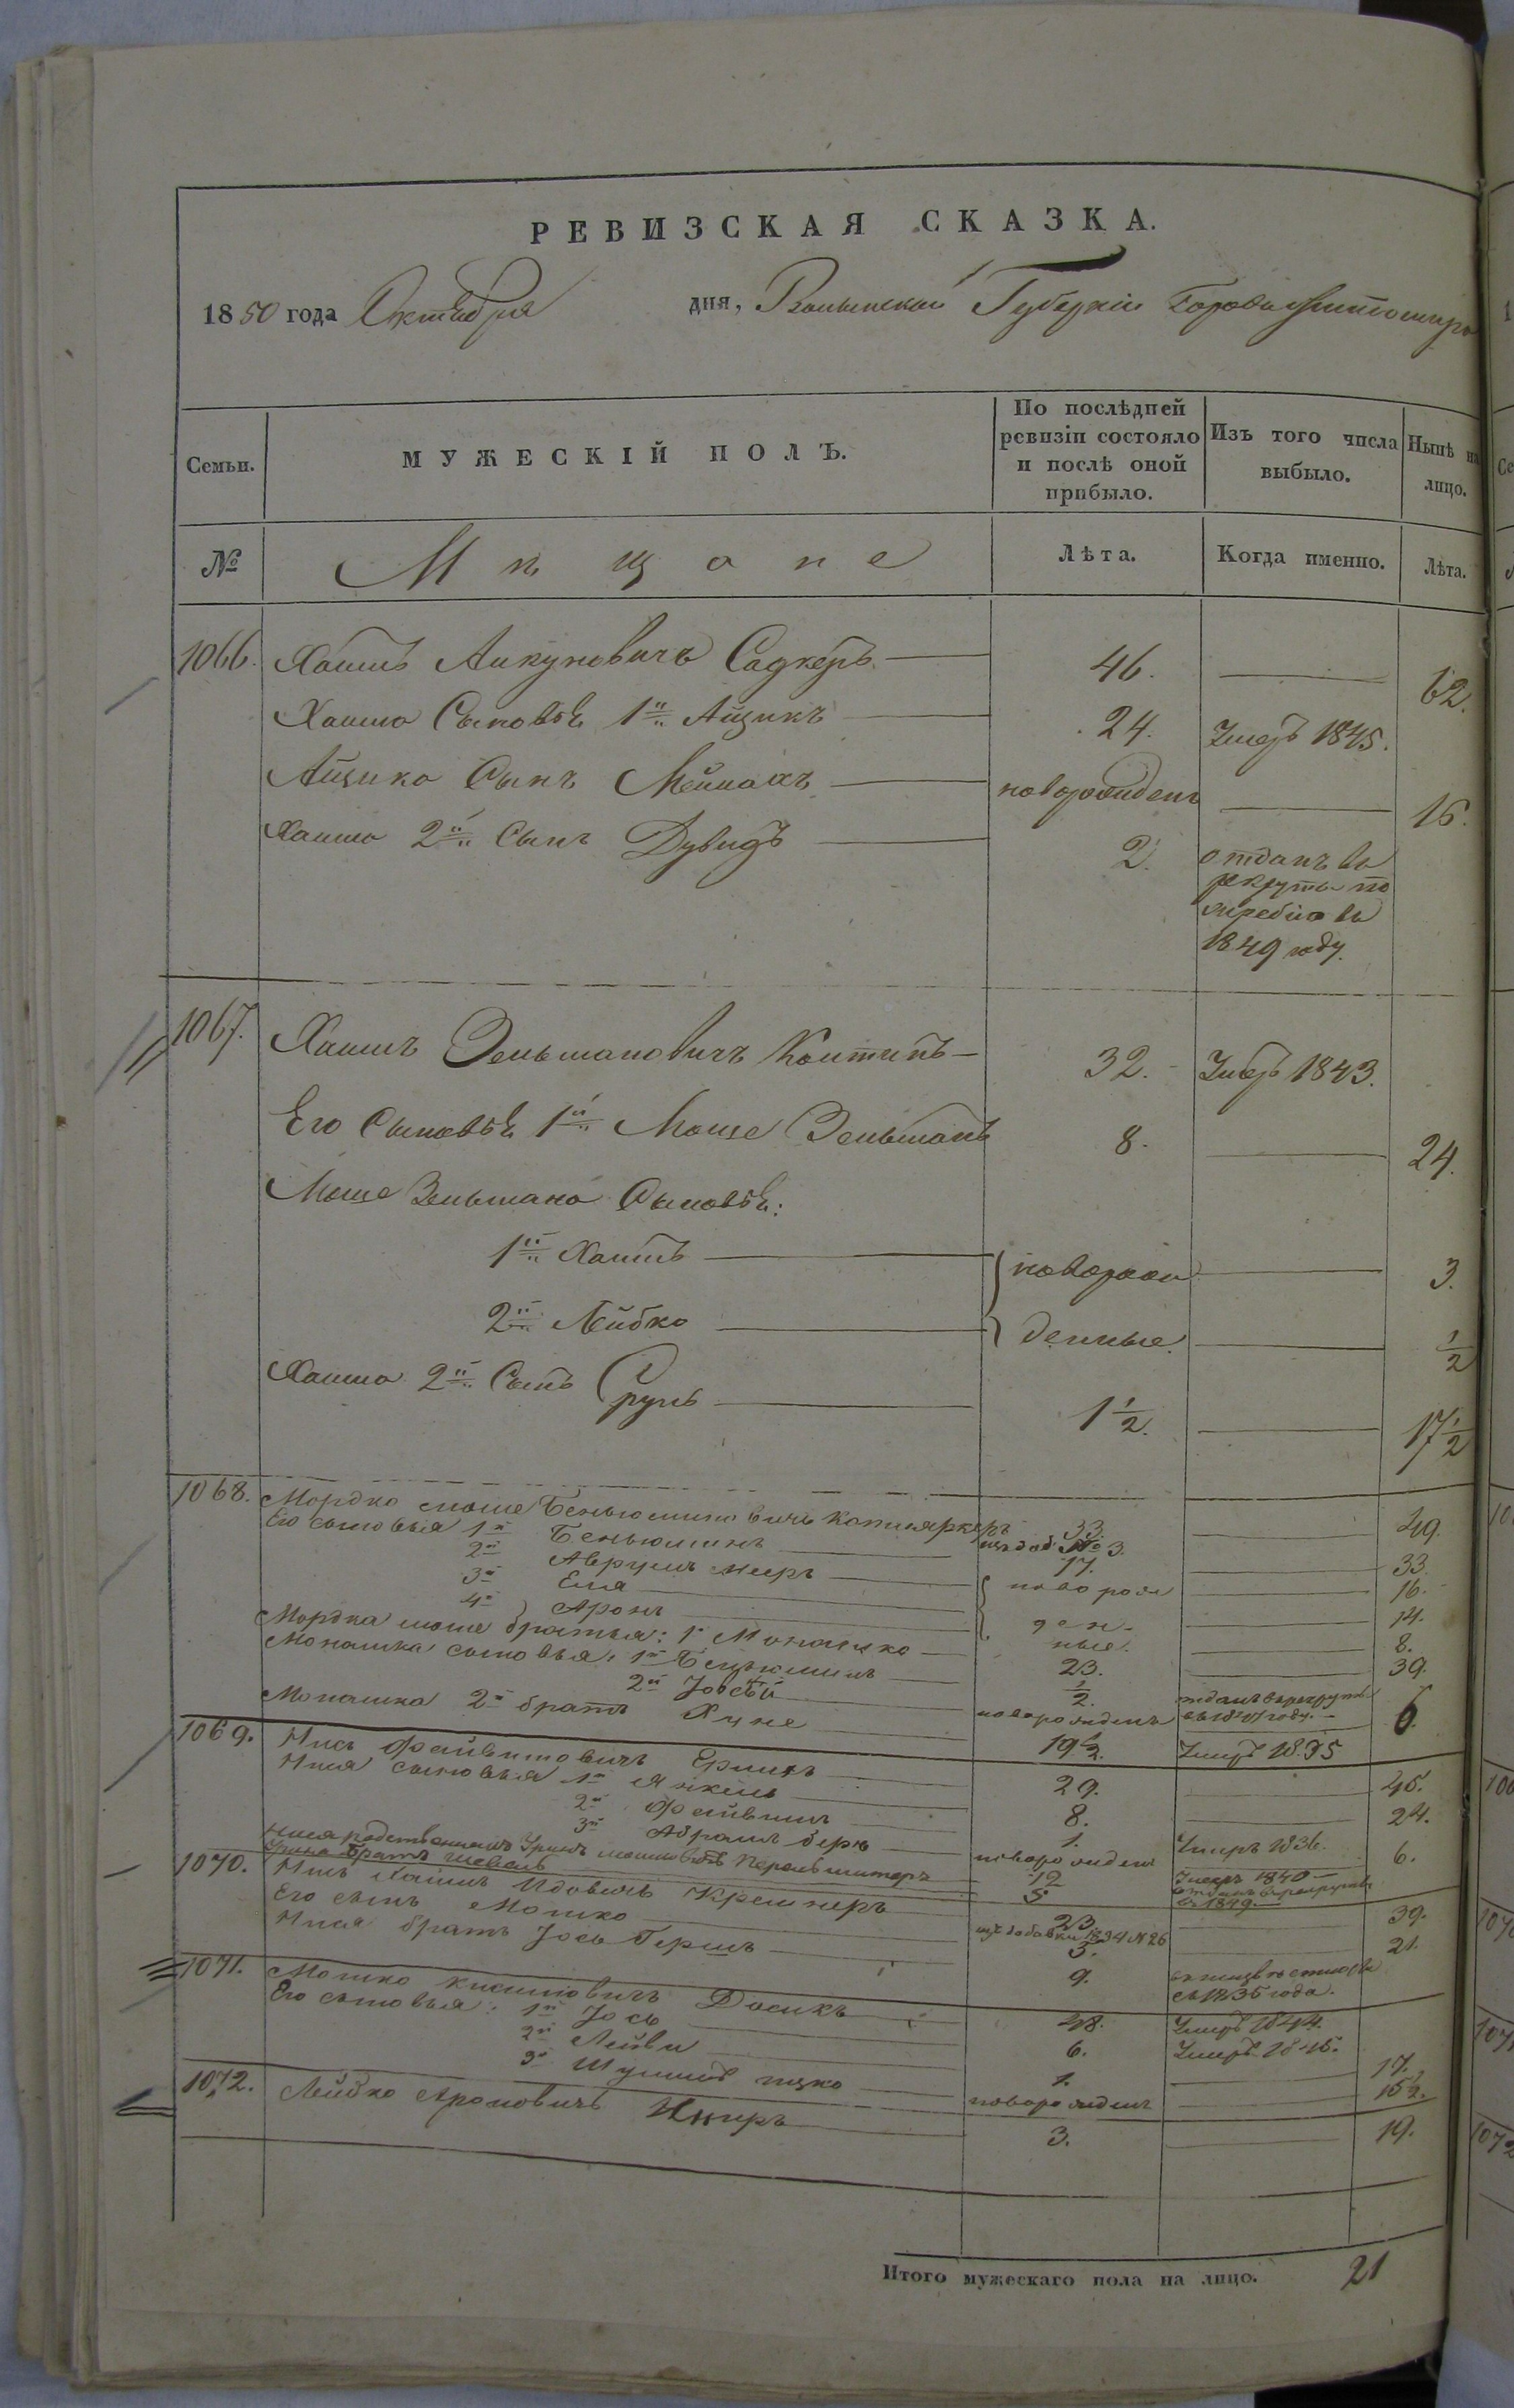 РЕВИЗСКАЯ СКАЗКА.
1850 года Октября дня, Волынской Губерніи Города Житомира
Семьи. МУЖЕСКІЙ ПОЛЪ. По послѣдней ревизіи состояло и послѣ оной прибыло. Изъ того числа выбыло. Нынѣ на лицо.
№ Мѣщане Лѣта. Когда именно. Лѣта.
1066. Хаимъ Ицковичъ Садкеръ 46. 62.
Хаима Сыновья 1й Айзикъ 24. Умеръ 1845.
Айзика Сынъ новорожденъ 16.
Хаима 2й Сынъ Дувидъ 2. отданъ въ
рекруты по
жребію въ
1849 году.
1067. Хаимъ Зельмановичъ 32. Умеръ 1843.
Его Сыновья 1й Моше Зельманъ 8. 24.
Моше Зельмана Сыновья:
1й Хаимъ новорож 3.
2й Лейбко денные. 1/2
Хаима 2й Сынъ Сруль 1 1/2. 17 1/2
1068. Мордко моше Беньюминовичъ 33. 49.
Его сыновья 1й Беньюминъ изъ доб. № 3. 17. 33.
2й Аврумъ мееръ новорож 16.
3й Еля ден 14.
4й Аронъ ные. 8.
Мордка моше братья: 1й Монашко 23. 39.
Монашка сыновья: 1й Беньюминъ 1/2. отданъ въ рекруты
2й Іосей новорожденъ 6.
Монашка 2й братъ Хуне 19 1/2. Умеръ 1835
1069. Нись Файвишовичъ 29. 45.
Нися сыновья 1й Янкель 8. 24.
2й Файвишъ 1. Умеръ 1836.
3й Абрамъ беръ новорожденъ 6.
Нися родственникъ 12 Умеръ 1840
братъ 5 отданъ въ рекруты въ 1849
1070. Нисъ Хаимъ Идовичъ Кремнеръ 23. 39.
Его сынъ Мошко изъ добавки 1834 № 26 5. 21.
Нися братъ Іось Гершъ 9.
съ 1835 года.
1071. Мошко Досикъ 48. Умеръ 1844.
Его сыновья: 1й Іось 6. Умеръ 1845.
2й Лейви 1. 17.
3й Шулимъ ицко новорожденъ 15 1/2.
1072. Лейбко Ароновичъ 3. 19.
Итого мужескаго пола на лицо. 21